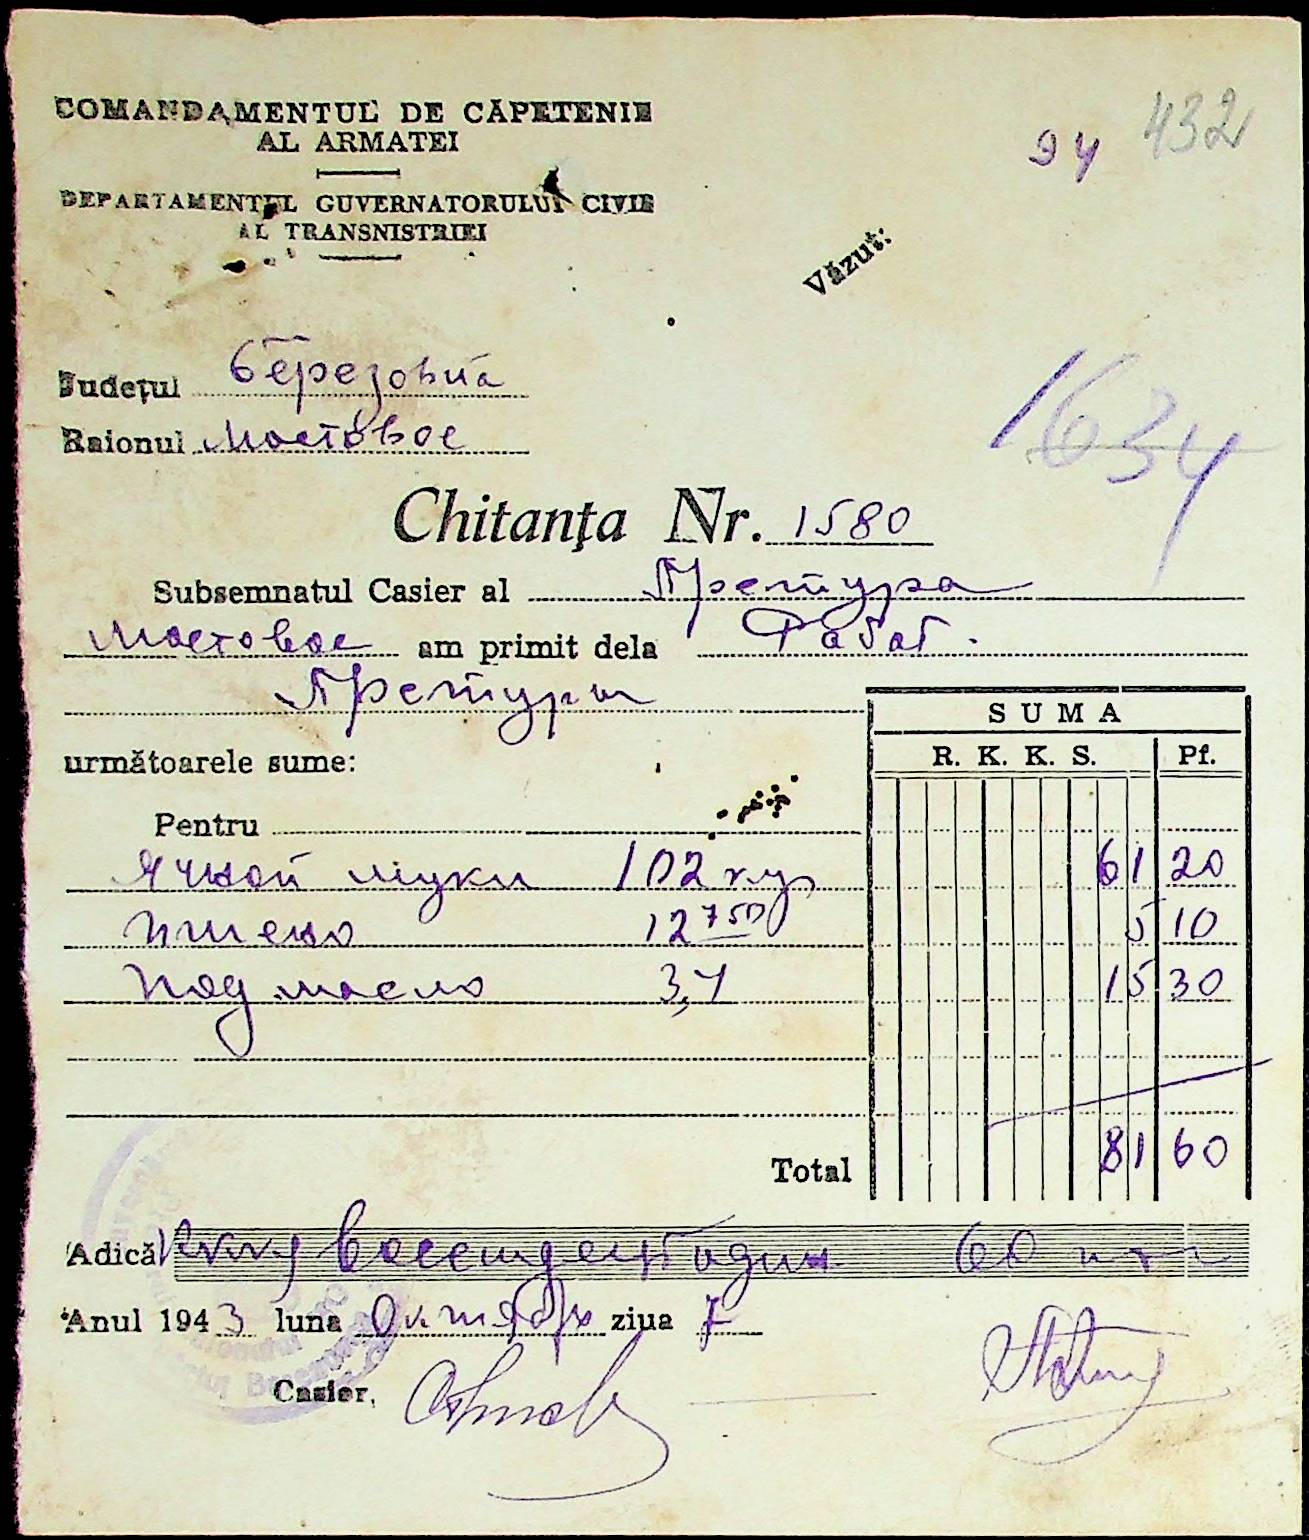 COMANDAMENTUL DE CĂPETENIE
AL ARMATEI
DEPARTAMENTUL GUVERNATORULUI CIVIL
AL TRANSNISTRIEI
94 432
Văzut:
Județul Березовка
Raionul Мостовое
1634
Chitanța Nr. 1580
Subsemnatul Casier al Претура
Мостовое am primit dela Работ.
Претуры
SUMA
următoarele sume:
R. K. K. S. Pf.
Pentru
Ячной муки 102 61 20
Пшено 12 750 5 10
Под масло 3,4 15 30
Total 81 60
Adică Восемдесят один 60
Anul 1943 luna Октябрь ziua 7
Casier,